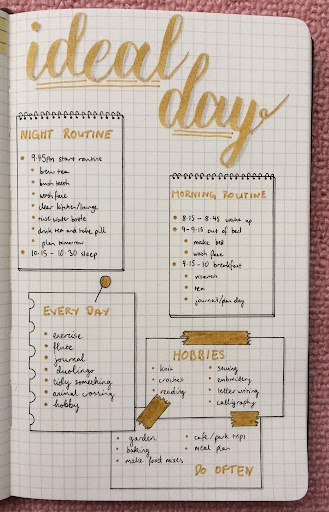 ideal
day
NIGHT ROUTINE
9:45pm start routine
brew tea
brush teeth
wash face
clear kitchen/lounge
rinse water bottle
drink tea and take pill
plan tomorrow
10:15 - 10:30 sleep
MORNING ROUTINE
8:15 - 8:45 wake up
9 - 9:15 out of bed
make bed
wash face
9:15 - 10 breakfast
vitamin
tea
journal/plan day
EVERY DAY
exercise
flute
journal
duolingo
tidy something
animal crossing
hobby
HOBBIES
knit
crochet
reading
sewing
embroidery
letter writing
calligraphy
garden
baking
make food mixes
cafe/park trips
meal plan
DO OFTEN